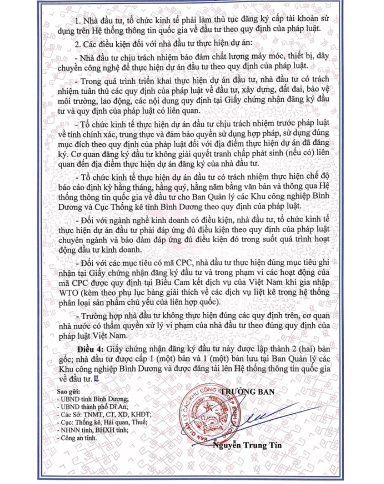 1. Nhà đầu tư, tổ chức kinh tế phải làm thủ tục đăng ký cấp tài khoản sử
dụng trên Hệ thống thông tin quốc gia về đầu tư theo quy định của pháp luật.
2. Các điều kiện đối với nhà đầu tư thực hiện dự án:
- Nhà đầu tư chịu trách nhiệm bảo đảm chất lượng máy móc, thiết bị, dây
chuyền công nghệ để thực hiện dự án đầu tư theo quy định của pháp luật.
- Trong quá trình triển khai thực hiện dự án đầu tư, nhà đầu tư có trách
nhiệm tuân thủ các quy định của pháp luật về đầu tư, xây dựng, đất đai, bảo vệ
môi trường, lao động, các nội dung quy định tại Giấy chứng nhận đăng ký đầu
tư và quy định của pháp luật có liên quan.
- Tổ chức kinh tế thực hiện dự án đầu tư chịu trách nhiệm trước pháp luật
về tính chính xác, trung thực và đảm bảo quyền sử dụng hợp pháp, sử dụng đúng
mục đích theo quy định của pháp luật đối với địa điểm thực hiện dự án đã đăng
ký. Cơ quan đăng ký đầu tư không giải quyết tranh chấp phát sinh (nếu có) liên
quan đến địa điểm thực hiện dự án của nhà đầu tư.
- Tổ chức kinh tế thực hiện dự án đầu tư có trách nhiệm thực hiện chế độ
báo cáo định kỳ hằng tháng, hằng quý, hằng năm bằng văn bản và thông qua Hệ
thống thông tin quốc gia về đầu tư cho Ban Quản lý các Khu công nghiệp Bình
Dương và Cục Thống kê tỉnh Bình Dương theo quy định của pháp luật.
- Đối với ngành nghề kinh doanh có điều kiện, nhà đầu tư, tổ chức kinh tế
thực hiện dự án đầu tư phải đáp ứng đủ điều kiện theo quy định của pháp luật
chuyên ngành và bảo đảm đáp ứng đủ điều kiện đó trong suốt quá trình hoạt
động đầu tư kinh doanh.
- Đối với các mục tiêu có mã CPC, nhà đầu tư thực hiện đúng mục tiêu ghi
nhận tại Giấy chứng nhận đăng ký đầu tư và trong phạm vi các hoạt động của
mã CPC được quy định tại Biểu Cam kết dịch vụ của Việt Nam khi gia nhập
WTO (kèm theo phụ lục bảng giải thích về các dịch vụ liệt kê trong hệ thống
phân loại sản phẩm chủ yếu của liên hợp quốc).
- Trường hợp nhà đầu tư không thực hiện đúng các quy định trên, cơ quan
nhà nước có thẩm quyền xử lý vi phạm của nhà đầu tư theo đúng quy định của
pháp luật Việt Nam.
Điều 4: Giấy chứng nhận đăng ký đầu tư này được lập thành 2 (hai) bản
gốc; nhà đầu tư được cấp 1 (một) bản và 1 (một) bản lưu tại Ban Quản lý các
Khu công nghiệp Bình Dương và được đăng tải lên Hệ thống thông tin quốc gia
về đầu tư.
TRƯỞNG BAN
Sao gửi:
- UBND tỉnh Bình Dương;
- UBND thành phố Dĩ An;
- Các Sở: TNMT, CT, XD, KHĐT;
- Cục: Thống kê, Hải quan, Thuế;
- NHNN tỉnh, BHXH tỉnh;
- Công an tỉnh.
Nguyễn Trung Tín